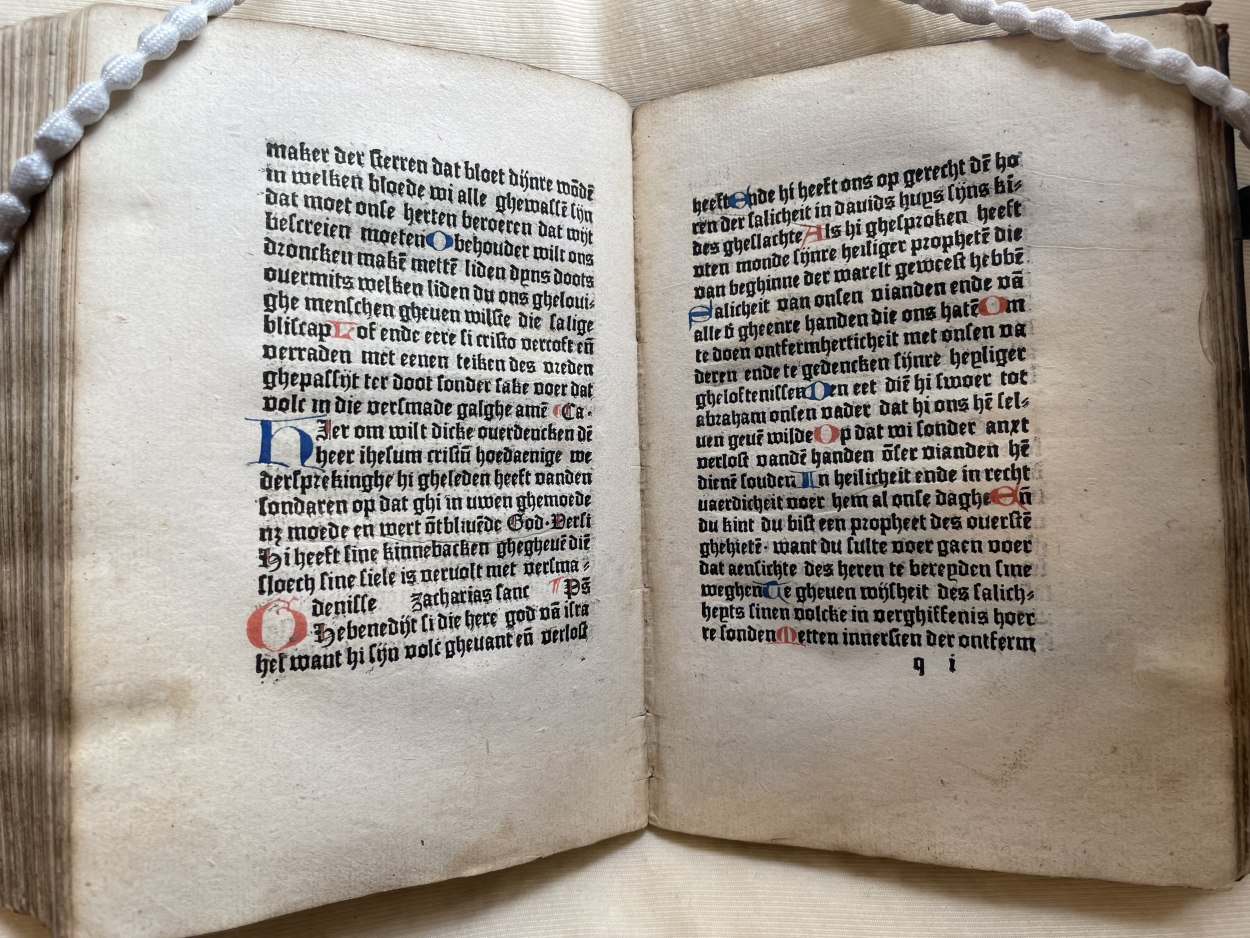 maker der sterren dat bloet dijnre wōdē
in welken bloede wi alle ghewassē sijn
dat moet onse herten beroeren dat wijt
bescreien moeten O behouder wilt ons
droncken makē mettē liden dyns doots
ouermits welken liden du ons gheloui-
ghe menschen gheuen wilste die salige
bliscap Lof ende eere si cristo vercoft eñ
verraden met eenen teiken des vreden
ghepassijt ter doot sonder sake voer dat
volc in die versmade galghe amē ¶ Ca.
HIer om wilt dicke ouerdencken dē
heer ihesum cristū hoedaenige we
dersprekinghe hi gheleden heeft vanden
sondaren op dat ghi in uwen ghemoede
nz moede en wert ōtbliuēde God. Versi
Hi heeft sine kinnebacken ghegheuē diē
sloech sine siele is veruolt met versma-
denisse Zacharias sanc ¶ Ps̄
GHebenedijt si die here god vā isra
hel want hi sijn volc gheuant eñ verlost
heeft Ende hi heeft ons op gerecht dē ho
ren der salicheit in dauids huys sijns ki-
des gheslachte Als hi ghesproken heeft
vten monde sijnre heiliger prophetē die
van beghinne der warelt geweest hebbē
Salicheit van onsen vianden ende vā
alle d' gheenre handen die ons hatē Om
te doen ontfermherticheit met onsen va
deren ende te gedencken sijnre heyliger
gheloftenissen Den eet diē hi swoer tot
abraham onsen vader dat hi ons hē sel-
uen geuē wilde Op dat wi sonder anxt
verlost vandē handen ōser vianden hē
dienē souden In heilicheit ende in recht
uaerdicheit voer hem al onse daghe Eñ
du kint du bist een propheet des ouerstē
ghehietē. want du sulte voer gaen voer
dat aensichte des heren te bereyden sine
weghen Te gheuen wijsheit des salich-
heyts sinen volcke in verghiffenis hoer
re sonden Metten innersten der ontferm
q i